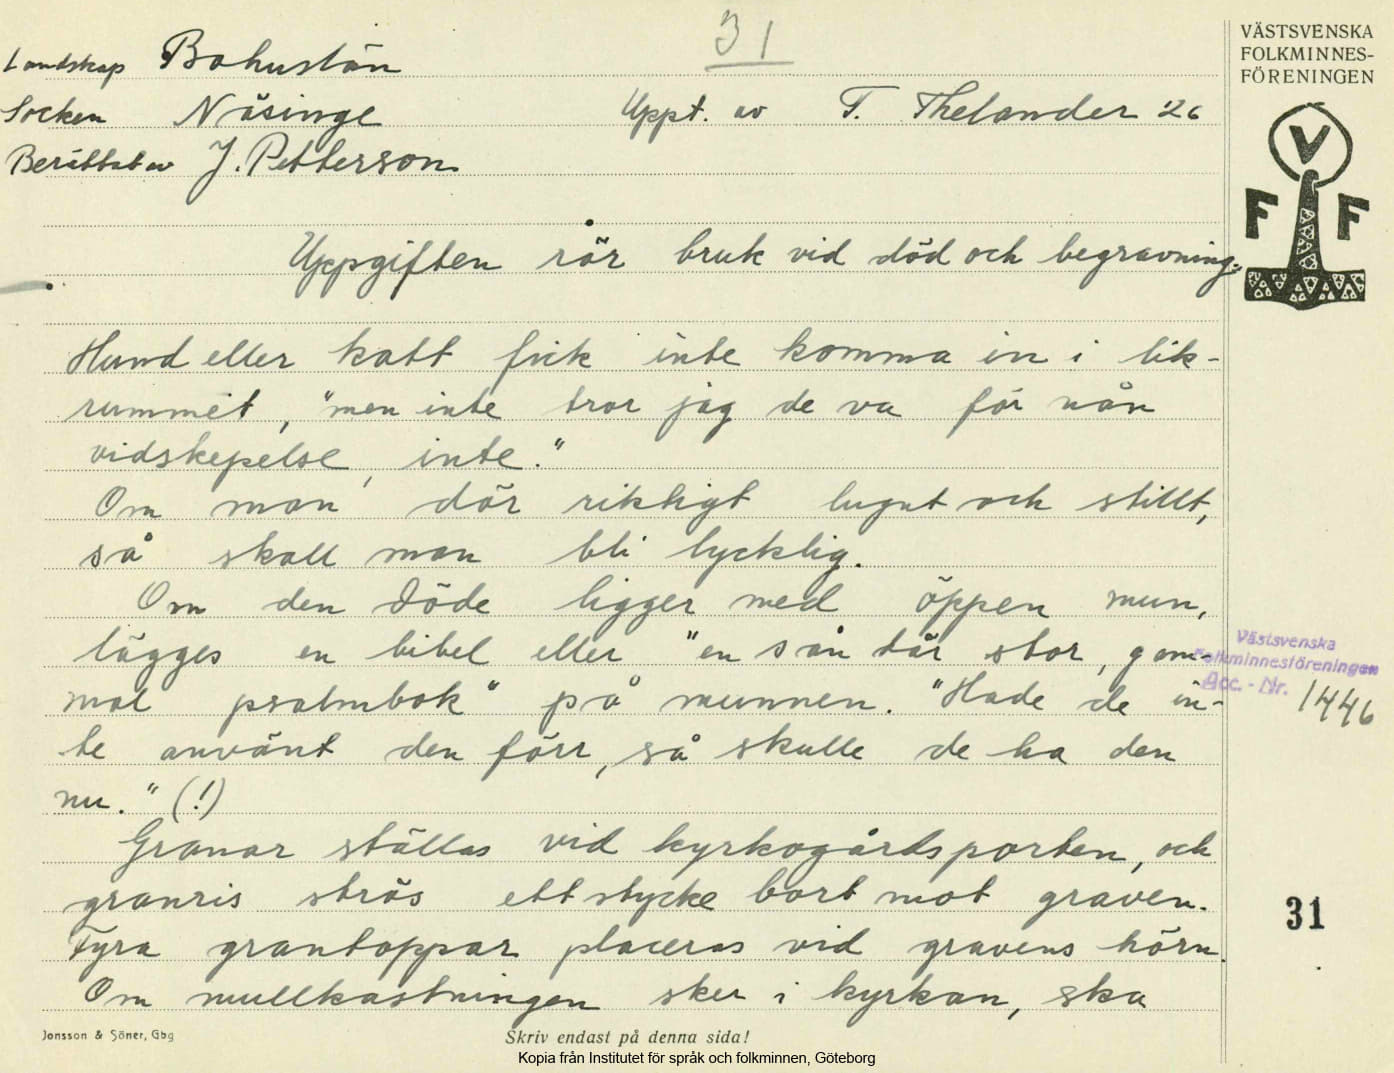 31
VÄSTSVENSKA
FOLKMINNES-
FÖRENINGEN
V
F F
Landskap Bohuslän
Socken Näsinge Uppt. av F. Thelander '26
Berättat av J. Petterson
Uppgiften rör bruk vid död och begravning.
Hund eller katt fick inte komma in i lik-
rummet, "men inte tror jag de va för nån
vidskepelse, inte."
Om man dör riktigt lugnt och stillt,
så skall man bli lycklig.
Om den döde ligger med öppen mun,
lägges en bibel eller "en sån där stor, gam-
mal psalmbok" på munnen. "Hade de in-
te använt den förr, så skulle de ha den
nu." (!)
Granar ställas vid kyrkogårdsporten, och
granris strös ett stycke bort mot graven.
Fyra grantoppar placeras vid gravens hörn.
Om mullkastningen sker i kyrkan, ska
Västsvenska
Folkminnesföreningen
Acc. - Nr. 1446
31
Jonsson & Söner, Gbg
Skriv endast på denna sida!
Kopia från Institutet för språk och folkminnen, Göteborg